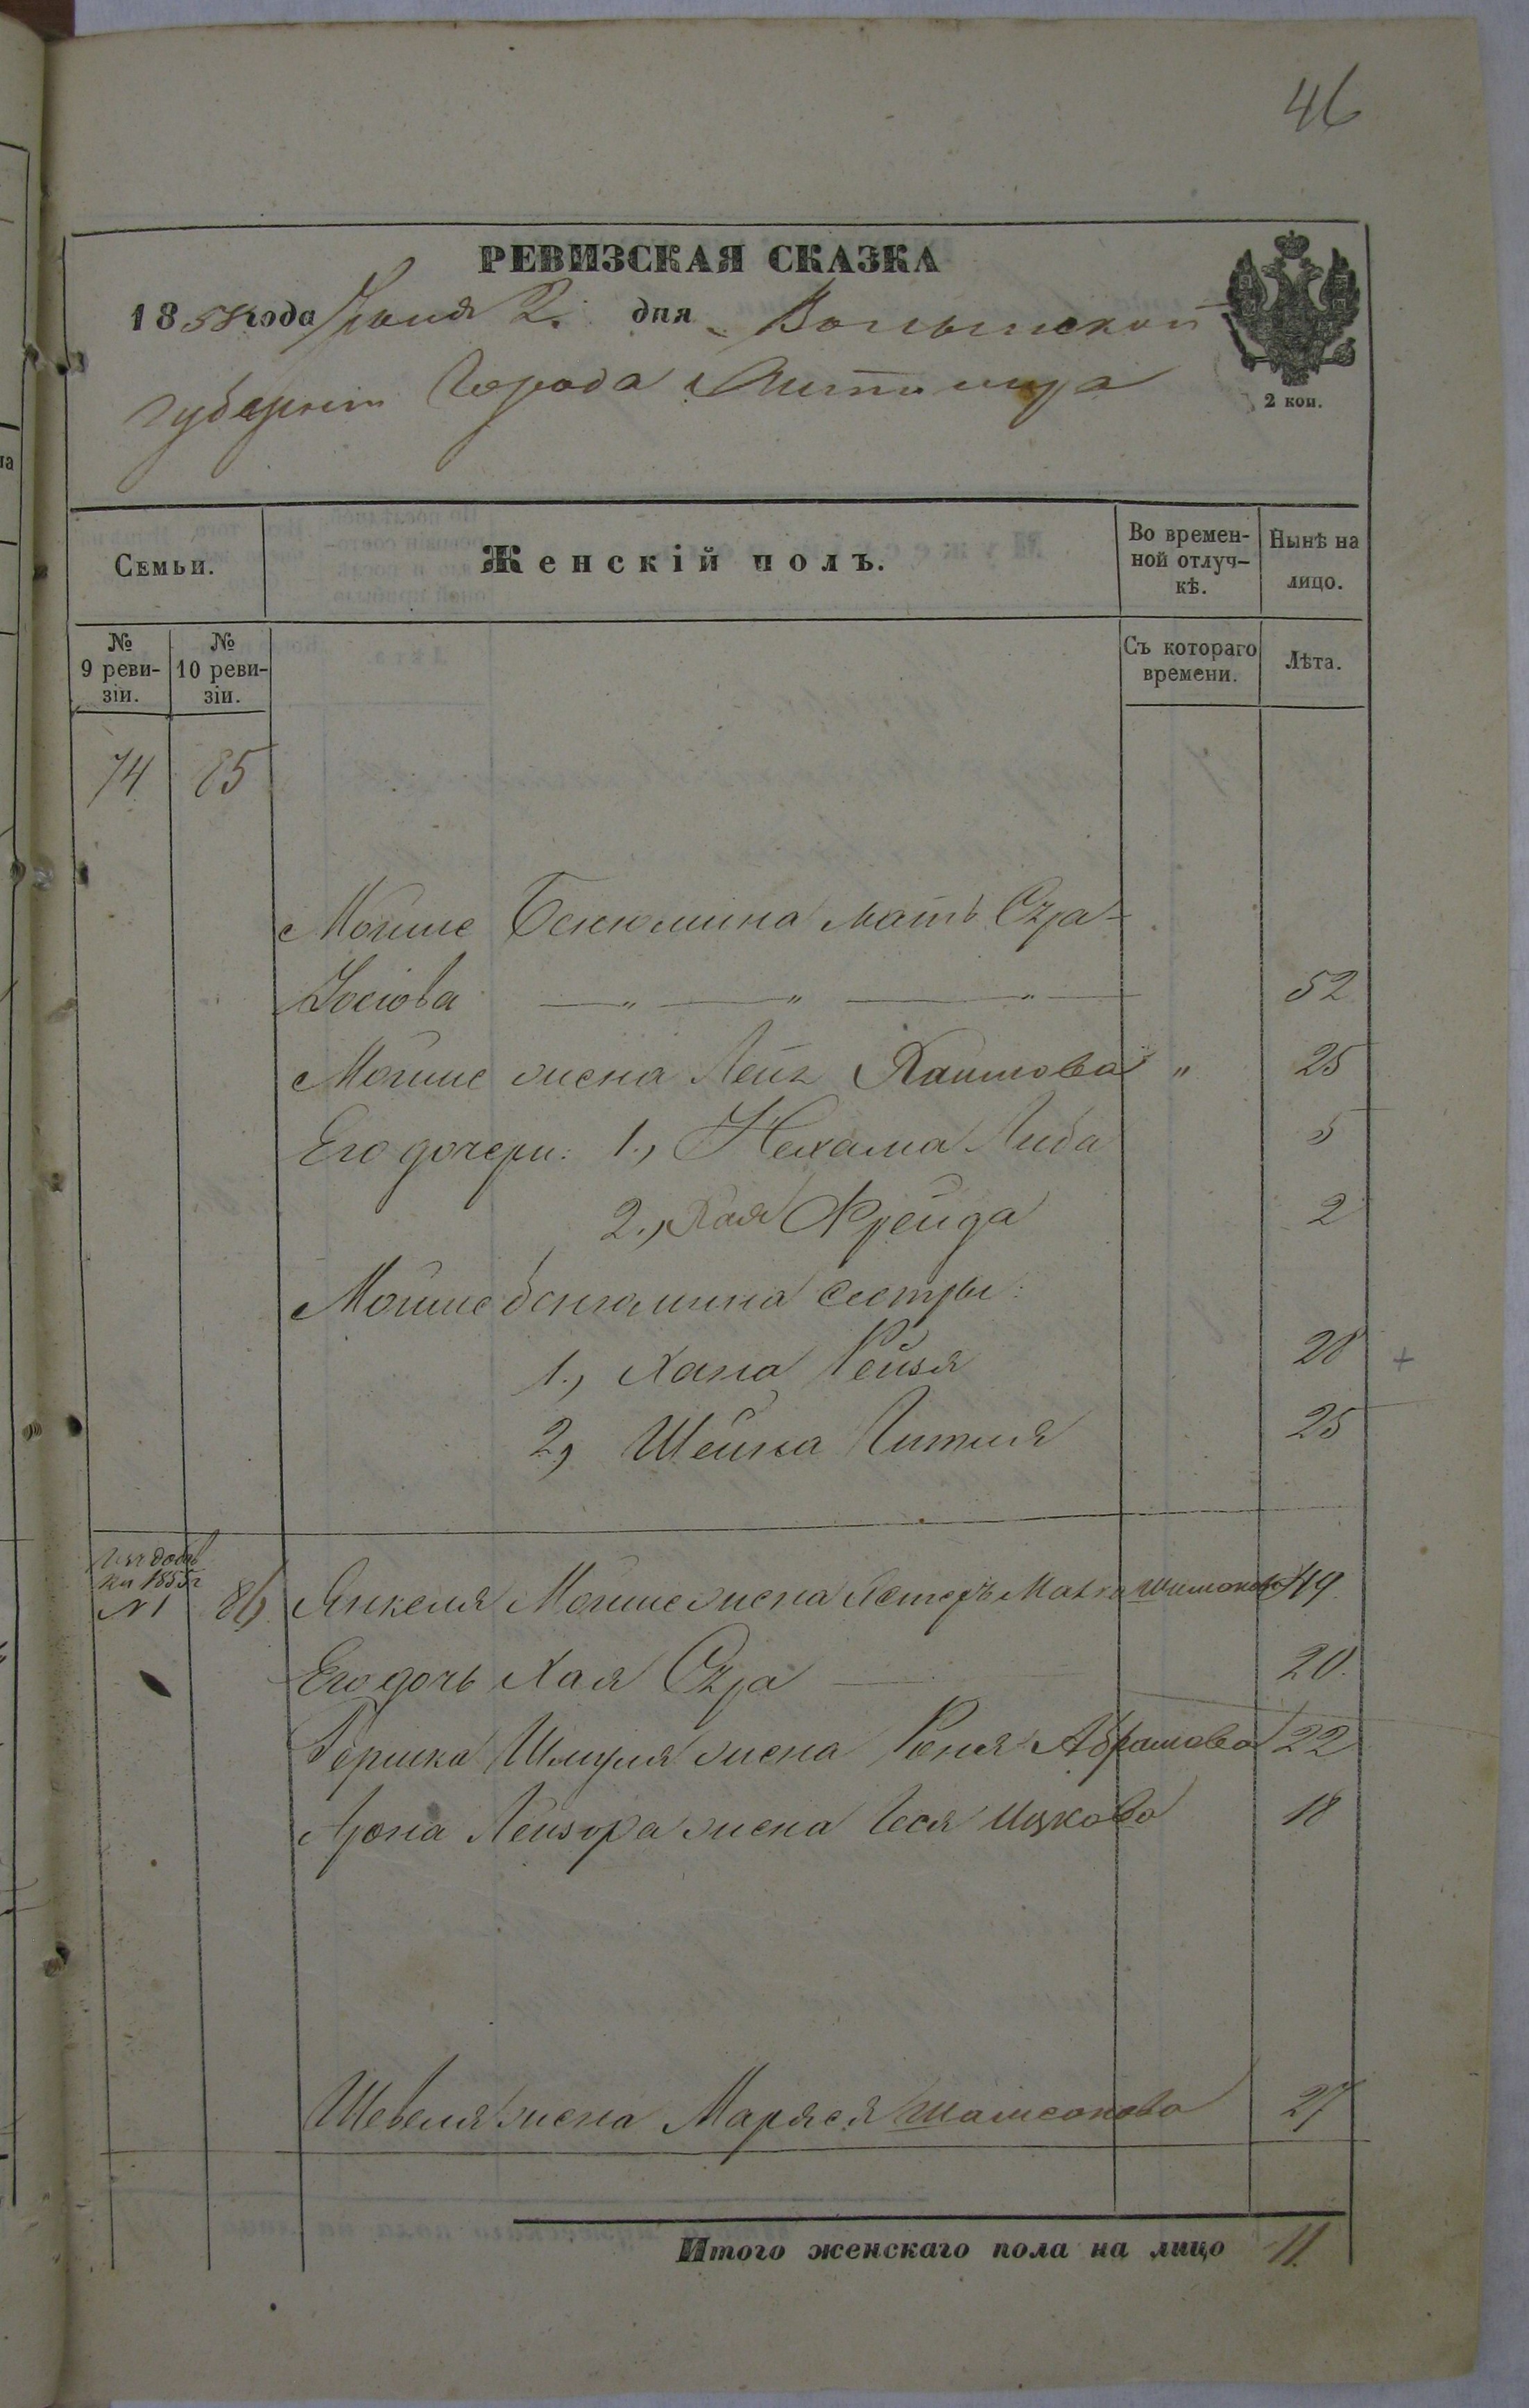 46
РЕВИЗСКАЯ СКАЗКА
1858 года Іюня 2. дня Волынской
губерніи Города Житомира
2 коп.
Семьи.
Женскій полъ.
Во времен-
ной отлуч-
кѣ.
Нынѣ на
лицо.
№
9 реви-
зіи.
№
10 реви-
зіи.
Съ котораго
времени.
Лѣта.
74 85
Мошие Бенюмина мать Сура
Іосіова — „ — „ — „ — 52
Мошие жена Лея Хаимова „ 25
Его дочери: 1., Нехама Либа 5
2., Хая Фрейда 2
Мошие бенюмина сестры:
1., Хана Рейзя 28 +
2, Шейна Гитля 25
ки 1855 г
№ 1 86 Янкеля Мошие жена Естеръ Шимонова 49
Его дочь Хая Сура 20.
Гершка Шмуля жена Абрамова 22
Арона Лейзора жена Песя Ицкова 18
Шевеля жена Маряся Шамсонова 27
Итого женскаго пола на лицо 11